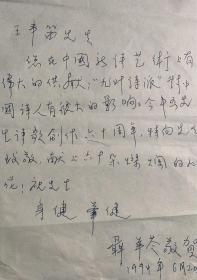 王辛笛先生
您在中国新诗艺术上有
伟大的供献，"九叶诗派"对中
国诗人有很大的影响。今年是先
生诗歌创作六十周年，特向先生
致敬，献上六十朵灿烂的火
花！祝先生
身健 笔健
敬贺
1994年6月20